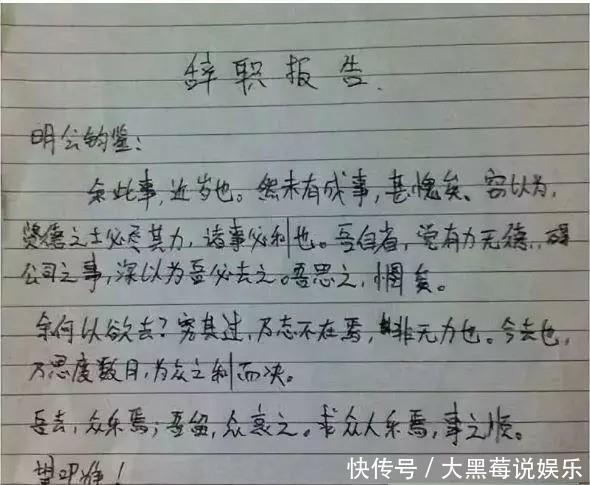 辞职报告.
明公钧鉴:
余此事,近岁也。然未有成事,甚愧矣。窃以为,
贤德之士必尽其力,诸事必利也。吾自省,觉有力无德,碍
公司之事,深以为吾必去之。吾思之,惆矣。
余何以欲去?究其过,乃志不在焉,非无力也。今去也,
乃思度数月,为众之利而决。
吾去,众乐焉;吾留,众哀之。求众人乐焉,事之顺。
望叩准!
快传号/大黑莓说娱乐